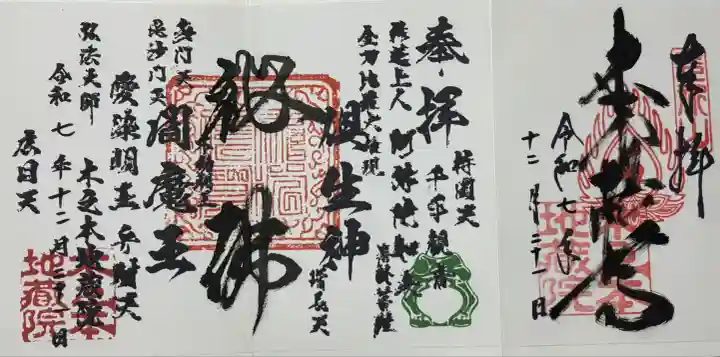 奉拝
令和七年
十二月三十一日
地蔵院
奉拝
持国天
千手観音
阿弥陀如来
上人
金刀比羅大権現
倶生神
増長天
佛
閻魔王
多聞天
毘沙門天
愛染明王 弁財天
弘法大師 木之本地蔵院
令和七年十二月三十一日
広目天
木之本
地蔵院